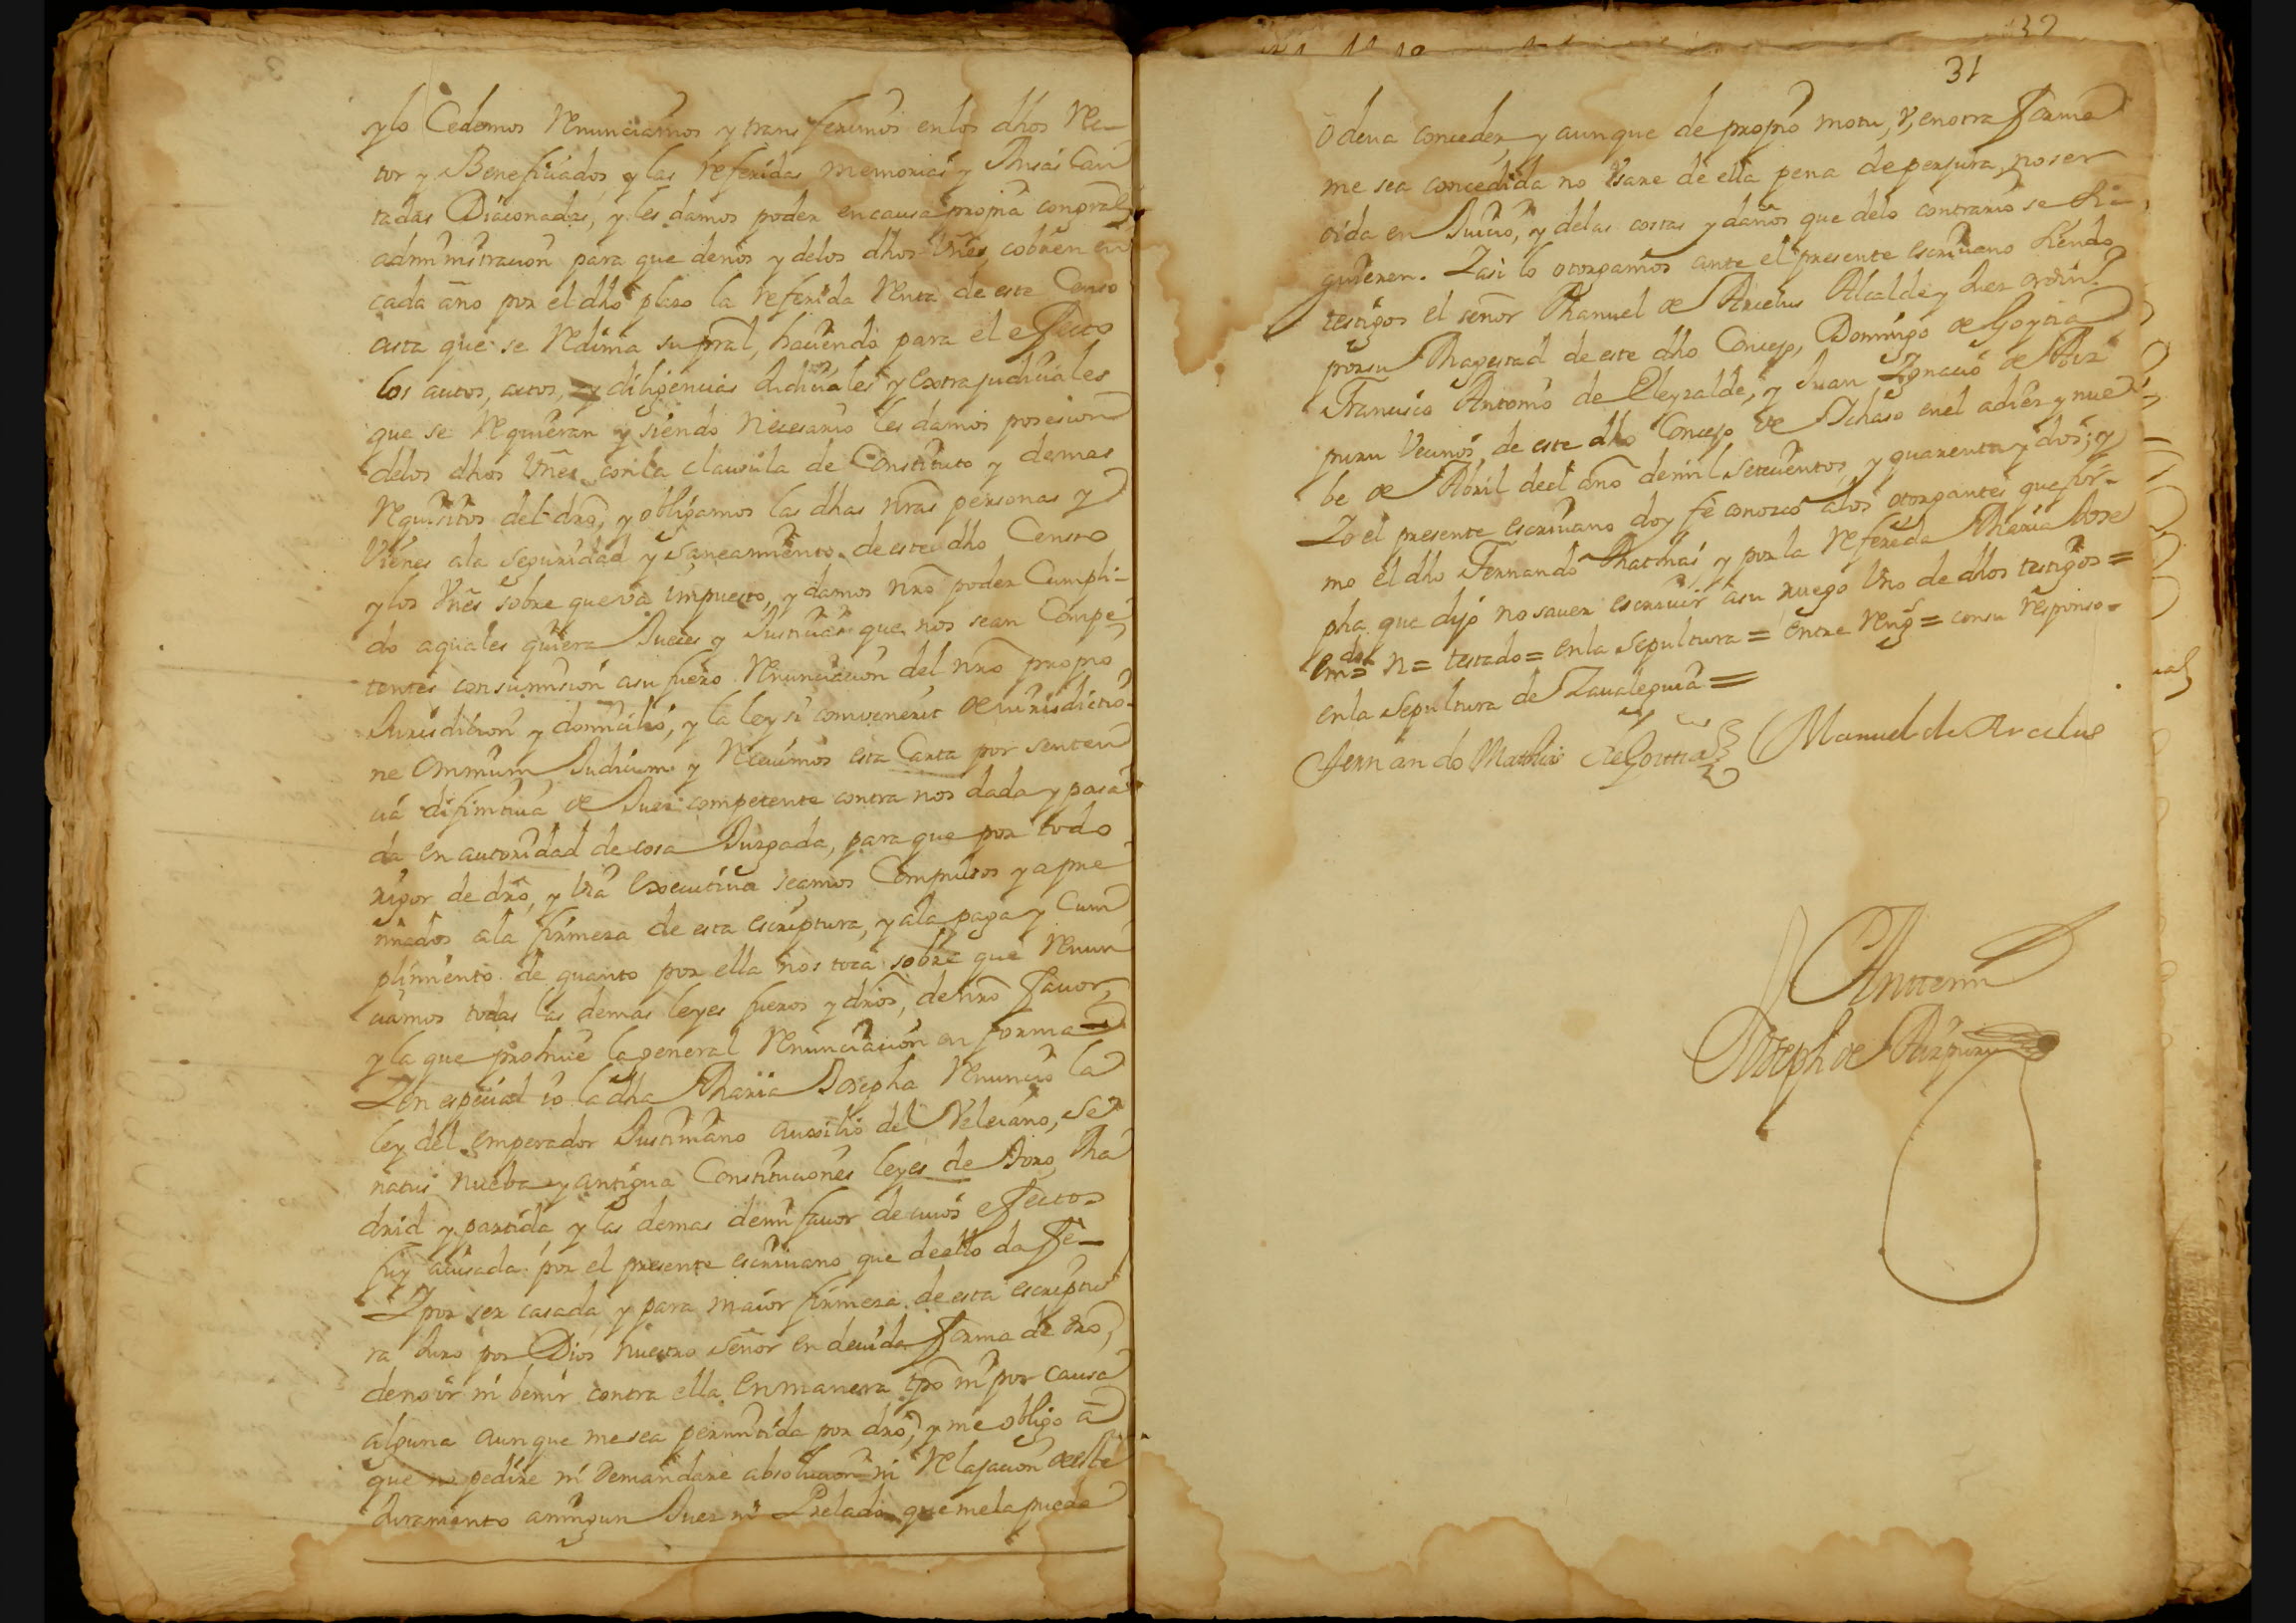 y lo Cedemos Renunciamos y transferimos en los dhos Re-
tor y Beneficiados, y las referidas memorias y Misas Can
tadas Diaconadas, y les damos poder en causa propia con gral
administracion para que de nos y delos dhos vñes, cobren en
cada año por el dho plazo la referida Renta de este Censo
asta que se Redima su pral, haciendo para el efecto
los autos, actos, y diligencias Judiciales y extrajudiciales
que se Requieran y siendo Necesario les damos posesion
delos dhos vñes con la clausula de Constituto y demas
Requisitos del dro, y obligamos las dhas nras personas y
vienes ala seguridad y saneamiento de este dho Censo
y los vñes sobre que va impuesto, y damos nro poder Cumpli-
do aquales quiera Jueces y Justicias que nos sean Compe
tentes con sumision asu fuero Renunciacion del nro propio
Jurisdicion y domicilio, y la ley si convenerit de iurisdictio-
ne Omnium Judicum y Recivimos esta Carta por senten
cia difinitiva de Juez competente contra nos dada y pasa
da en autoridad de cosa Juzgada, para que por todo
rigor de dro, y via executiva seamos Compulsos y apre
miados ala firmeza de esta escriptura, y ala paga y Cum
plimiento de quanto por ella nos toca sobre que Renun
ciamos todas las demas leyes fueros y dros, de nro favor,
y la que prohive la general Renunciacion en forma
Y en especial io la dha Maria Josepha Renuncio la
ley del emperador Justiniano auxilio del Veleiano, Se
natus nueba y antigua Constituciones leyes de Toro, Ma
drid y partida, y las demas de mi favor de cuios efectos
fuy avisada por el presente escrivano que de ello da fe-
Y por ser casada, y para maior firmeza de esta escriptu
ra Juro por Dios nuestro señor en devida forma de dro,
de no ir ni benir contra ella en manera tpo ni por causa
alguna aunque me sea permitida por dro, y me obligo a
que no pedire ni demandare absolucion ni Relajacion de este
Juramento aningun Juez ni Prelado que mela pueda
32
31
o deva conceder, y aunque de propio motu, v, en otra forma
me sea concedida no usare de ella pena de perjura, no ser
oida en Juicio, y delas costas y daños que delo contrario se si-
guieren. Y asi lo otorgamos ante el presente escrivano siendo
testigos el señor Manuel de Arcelus Alcalde y Juez ordin.º
por su Magestad de este dho Concejo, Domingo de Goytia
Francisco Antonio de Eleyzalde, y Juan Ygnacio de Aiz
puru vecinos de este dho Concejo de Ichaso en el a diez y nue
be de Abril de el año de mil setecientos, y quarenta y dos; y
Yo el presente escrivano doy fe conozco alos otorgantes que fir-
mo el dho Fernando Mathias y por la referida Maria Jose
pha que dijo no saver escrivir asu ruego Uno de dhos testigos =
en la sepultura = entre reng.s = con su responso-
en la sepultura de Zavaleguia =
Fernando Mathias de Goitia Manuel de Arcelus
Ante mi
Joseph de Aizpuru